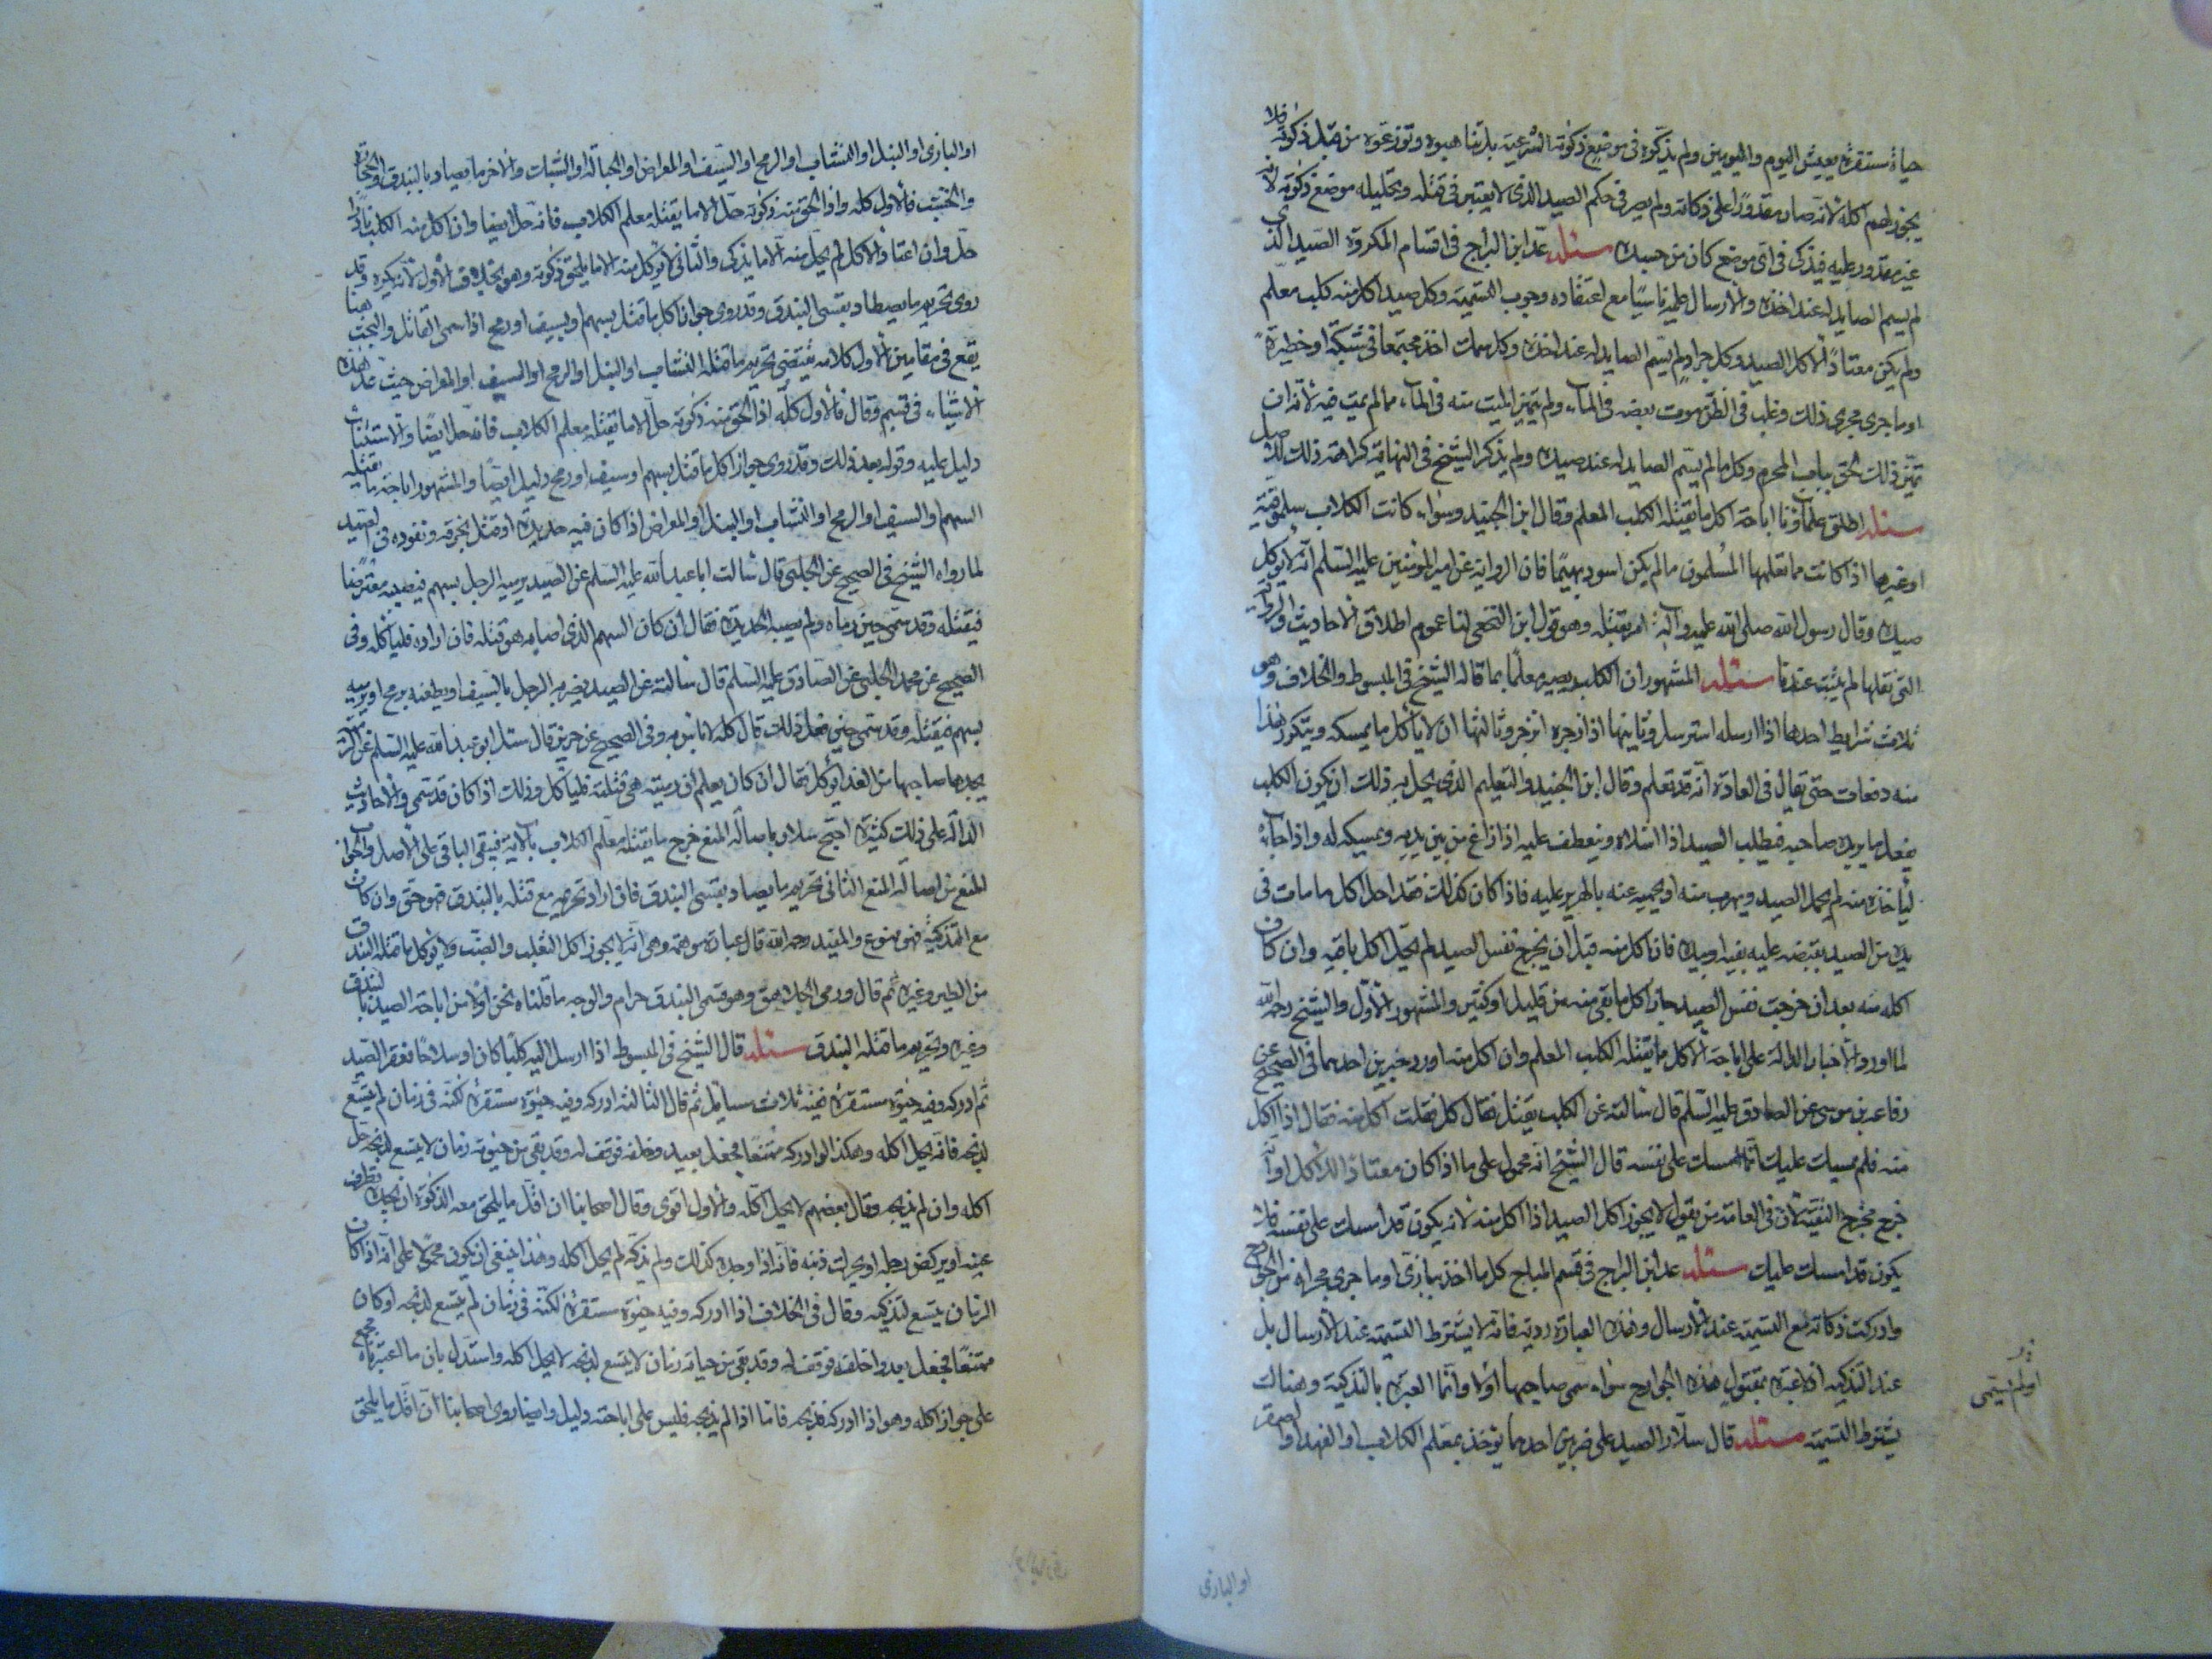 حياة مستقرة يعيش اليوم واليومين ولم يذكوه في موضع ذكوته الشرعية بل تناهبوه وتوزعوه من قبل ذكوته فلا
يجوز لهم اكله لانه صار مقدورا على ذكاته ولم يصر في حكم الصيد الذي لا يعتبر في قتله وتحليله موضع ذكوته لانه
غير مقدور عليه فيذكى في اي موضع كان من جسده مسئله عد ابن البراج في اقسام المكروه الصيد الذي
لم يسم الصايد له عند اخذه والارسال عليه ناسيا مع اعتقاده وجوب التسمية وكل صيد اكل منه كلب معلم
ولم يكن معتادا لاكل الصيد وكل جراد لم يسم الصايد له عند اخذه وكل سمك اخذ مجتمعا في شبكة او حظيرة
او ما جرى مجرى ذلك وغلب في الظن موت بعضه في الماء ولم يتميز الميت منه في الماء مما لم يمت فيه لانه ان
تميز ذلك لحق بباب المحرم وكل ما لم يسم الصايد له عند صيده ولم يذكر الشيخ في النهاية كراهة ذلك
مسئله اطلق علماؤنا اباحة اكل ما يقتله الكلب المعلم وقال ابن الجنيد وسواء كانت الكلاب سلوقية
او غيرها اذا كانت مما تعلمها المسلمون ما لم يكن اسود بهيما فان الرواية عن امير المؤمنين عليه السلم انه لا يؤكل
صيده وقال رسول الله صلى الله عليه وآله امر بقتله وهو قول ابن النخعي لنا عموم اطلاق الاحاديث والرواية
التي نقلها لم يثبت عندنا مسئله المشهور ان الكلب يصير معلما بما قاله الشيخ في المبسوط والخلاف وهو
ثلاث شرايط احدها اذا ارسله استرسل وثانيها اذا زجره انزجر وثالثها ان لا يأكل ما يمسكه ويتكرر هذا
منه دفعات حتى يقال في العادة انه قد تعلم وقال ابن الجنيد والتعليم الذي يحل به ذلك ان يكون الكلب
يفعل ما يريده صاحبه فيطلب الصيد اذا اشلاه وينعطف عليه اذا زاغ من بين يديه ويمسكه له واذا جاءه
ليأخذه منه لم يحمل الصيد ويهرب منه او يحميه عنه بالهرير عليه فاذا كان كذلك فقد احل اكل ما مات في
يده من الصيد بقبضه عليه بفيه او بيده فان اكل منه قبل ان يخرج نفس الصيد لم يحل اكل باقيه وان كان
اكله منه بعد ان خرجت نفس الصيد جاز اكل ما بقي منه من قليل او كثير والمشهور الاول والشيخ رحمه الله
لما اورد الاخبار الدالة على اباحة الاكل ما يقتله الكلب المعلم وان اكل منه اورد خبرين احدهما في الصحيح عن
رفاعة بن موسى عن الصادق عليه السلم قال سألته عن الكلب يقتل فقال كل فقلت اكل منه فقال اذا اكل
منه فلم يمسك عليك انما امسك على نفسه قال الشيخ انه محمول على ما اذا كان معتادا لذلك او انه
خرج مخرج التقية لان في العامة من يقول لا يجوز اكل الصيد اذا اكل منه لانه يكون قد امسك على نفسه فلا
يكون قد امسك عليك مسئله عد ابن البراج في قسم المباح كل ما اخذ ببازى او ما جرى مجراه من الجوارح
وادركت ذكاته مع التسمية عند الارسال وهذه العبارة ردية فانه لا يشترط التسمية عند الارسال بل
عند التذكية اذ لا عبرة بمقتول هذه الجوارح سواء سمى صاحبها اولا وانما العبرة بالتذكية وهناك
يشترط التسمية مسئله قال سلار الصيد على ضربين احدهما يؤخذ بمعلم الكلاب او الفهد او الصقر
او لم يسمى
او البازى
او البازى او النبل او النشاب او الرمح او السيف او المعراض او الحبالة او الشبك والاخر ما يصاد بالبندق والحجارة
والخشب فالاول كله اذا لحق منه ذكوته حل الا ما يقتله معلم الكلاب فانه حل ايضا وان اكل منه الكلب نادرا
حل وان اعتاد الاكل لم يحل منه الا ما يذكى والثاني لا يؤكل منه الا ما يلحق ذكوته وهو بخلاف الاول لانه يكره وقد
روى تحريم ما يصطاد بقسي البندق وقد روى جواز اكل ما قتل بسهم او بسيف او رمح اذا سمى القاتل والبحث هنا
يقع في مقامين الاول كلامه يقتضي تحريم ما قتله النشاب او النبل او الرمح او السيف او المعراض حيث عد هذه
الاشياء في قسم وقال فالاول كله اذا لحق منه ذكوته حل الا ما يقتله معلم الكلاب فانه حل ايضا والاستثناء
دليل عليه وقوله بعد ذلك وقد روى جواز اكل ما قتل بسهم او سيف او رمح دليل ايضا والمشهور اباحة ما يقتله
السهم والسيف او الرمح او النشاب او النبل او المعراض اذا كان فيه حديدة او قتل بخرقه ونفوذه في الصيد
لما رواه الشيخ في الصحيح عن الحلبي قال سألت ابا عبد الله عليه السلم عن الصيد يرميه الرجل بسهم فيصيبه معترضا
فيقتله وقد سمى حين رماه ولم يصبه الحديدة فقال ان كان السهم الذي اصابه هو قتله فان اراده فليأكله وفي
الصحيح عن محمد الحلبي عن الصادق عليه السلم قال سألته عن الصيد يضربه الرجل بالسيف او يطعنه برمح او يرميه
بسهم فيقتله وقد سمى حين فعل ذلك قال كله لا باس به وفي الصحيح عن حريز قال سئل ابو عبد الله عليه السلم عن الرمية
يجدها صاحبها من الغد ايؤكل فقال ان كان يعلم ان رميته هي قتلته فليأكل وذلك اذا كان قد سمى والاحاديث
الدالة على ذلك كثيرة احتج سلار باصالة المنع خرج ما يقتله معلم الكلاب بالاية فيبقى الباقي على الاصل والجواب
المنع من اصالة المنع الثاني تحريم ما يصاد بقسي البندق فان اراد تحريمه مع قتله بالبندق فهو حق وان كان
مع التذكية فهو ممنوع والمفيد رحمه الله قال عبارة موهمة وهي انه لا يجوز اكل الثعلب والضب ولا يؤكل ما قتله البندق
من الطير وغيره ثم قال ورمى الجلاهق وهو قسي البندق حرام والوجه ما قلناه نحن اولا من اباحة الصيد بالبندق
وغيره وتحريم ما قتله البندق مسئله قال الشيخ في المبسوط اذا ارسل اليه كلبا كان او سلاحا فعقر الصيد
ثم ادركه وفيه حيوة مستقرة ففيه ثلاث مسايل ثم قال الثالثة ادركه وفيه حيوة مستقرة لكنه في زمان لم يتسع
لذبحه فانه يحل اكله وهكذا لو ادركه ممتنعا فجعل يعدو خلفه فوقف له وقد بقي من حيوته زمان لا يتسع لذبحه حل
اكله وان لم يذبحه وقال بعضهم لا يحل اكله والاول اقوى وقال اصحابنا ان اقل ما يلحق معه الذكوة ان يجده تطرف
عينه او يركض رجله او يحرك ذنبه فانه اذا وجده كذلك ولم يذكه لم يحل اكله وهذا ينبغي ان يكون محمولا على انه اذا كان
الزمان يتسع لتذكيه وقال في الخلاف اذا ادركه وفيه حيوة مستقرة لكنه في زمان لم يتسع لذبحه او كان
ممتنعا فجعل يعدوا خلفه فوقف له وقد بقي من حياته زمان لا يتسع لذبحه لا يحل اكله واستدل بان ما اعتبرناه مجمع
على جواز اكله وهو اذا ادركه فذبحه فاما اذا لم يذبحه فليس على اباحته دليل وايضا روى اصحابنا ان اقل ما يلحق